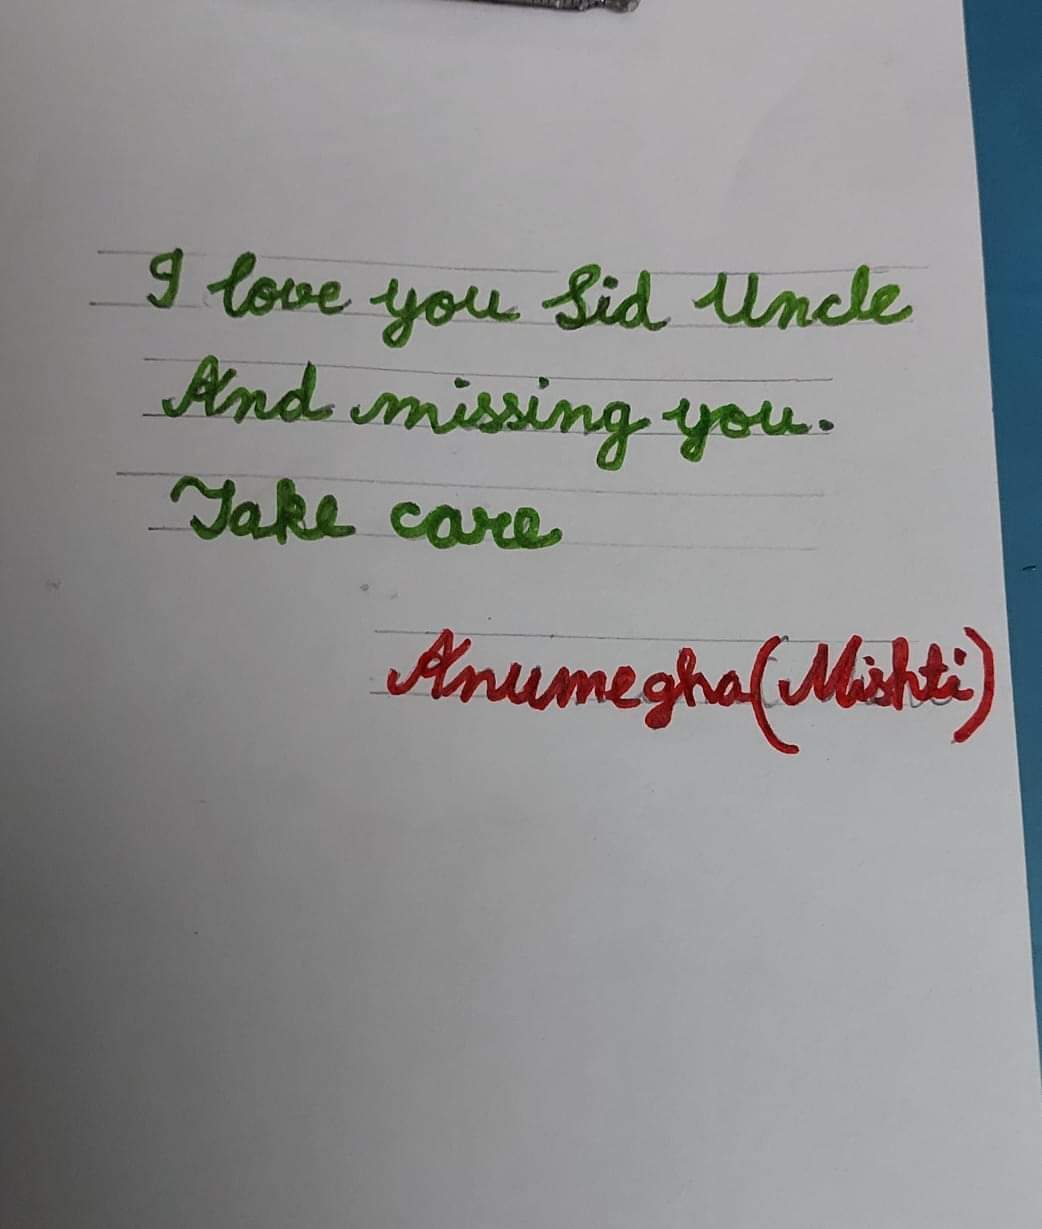 I love you Sid Uncle
And missing you.
Take care
Anumegha (Mishti)